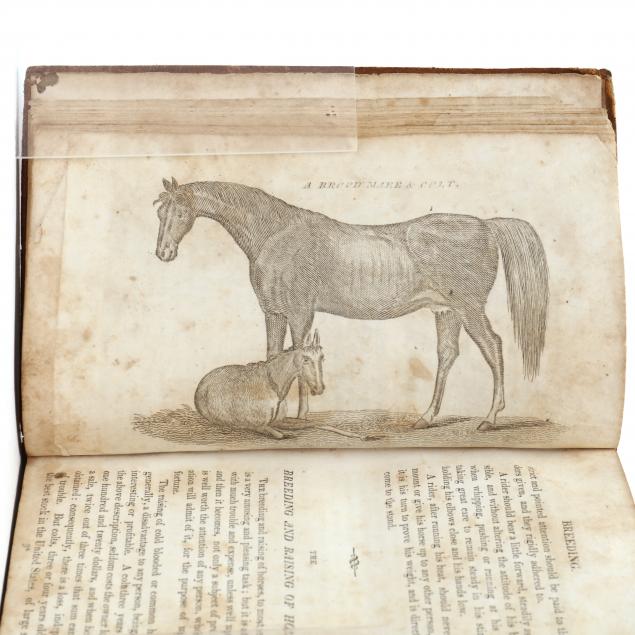 A BROOD MARE & COLT.
BREEDING.
strict and pointed attention should be paid to the
ders given, and they rigidly adhered to.
A rider should bear a little forward, steadily
silk, and without altering the attitude of his
when whipping, pushing or running at his
taking great care to remain steady in his
holding his elbows close and his hands low.
A rider, after running his heat, should never
mount or give his horse up to any other person
it is his turn to prove his weight, and is
come to the stand.
THE
BREEDING AND RAISING OF
The breeding and raising of horses, to most
is a very amusing and pleasing task: but is
with much trouble and expense, unless well
and then it becomes, not only a subject of
is well worth the attention of any person,
ation will admit of it, for the purpose of
fortune.
The raising of cold blooded or common
generally, a disadvantage to any person,
interesting or profitable. A colt three years
the above description, seldom cost the owner
one hundred and twenty dollars, and when
a sale, twice out of three times that sum
obtained: consequently, there is a loss,
trouble. But colts, three or four years
the best stock in the United States, of large